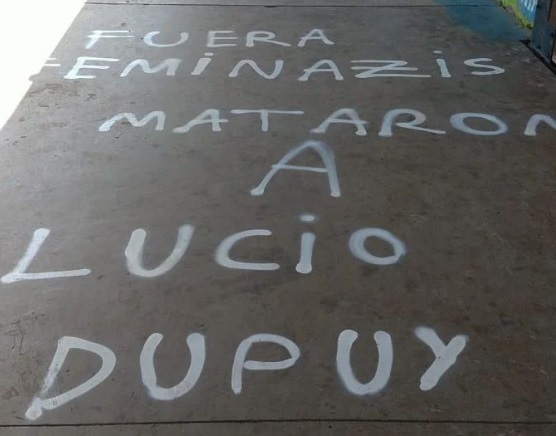 FUERA
FEMINAZIS
MATARON
A
LUCIO
DUPUY